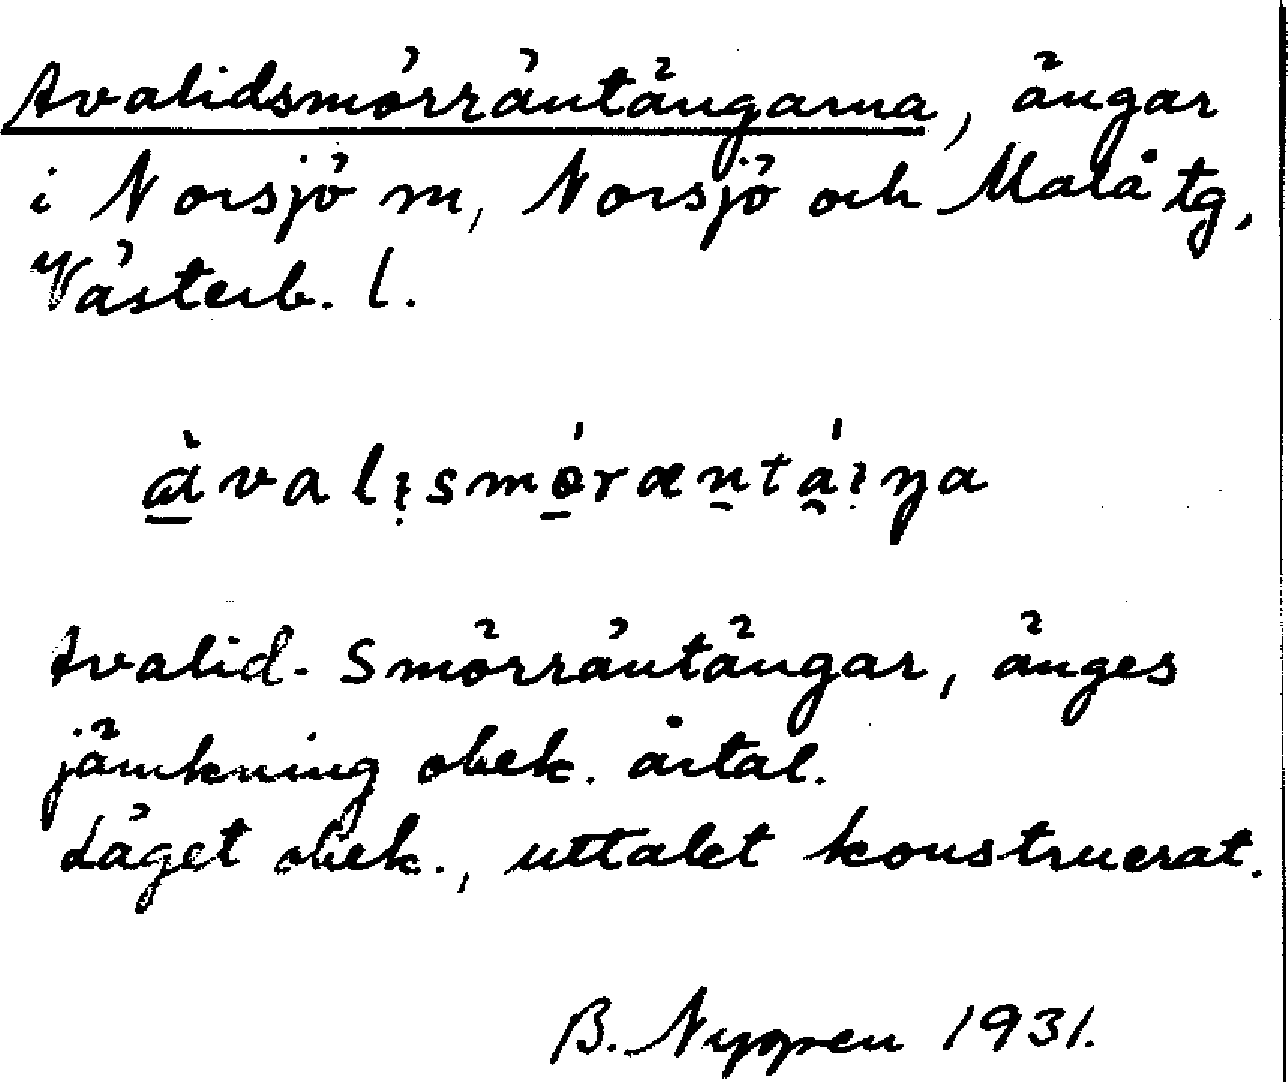 Avalidsmörräntängarna, ängar
i Norsjö sn, Norsjö och Malå tg,
Västerb. l.
a̠̍valı̣smö̠́ræn̠tá̮ı̣ŋa
Avalid-Smörräntängar, änges
jämkning obek. årtal.
Läget obek., uttalet konstruerat.
B. Nygren 1931.